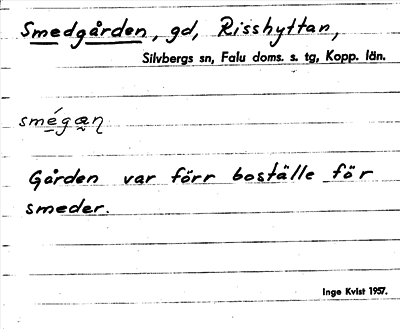 Smedgården, gd, Risshyttan,
Silvbergs sn, Falu doms. s. tg, Kopp. län.
smégæ̰ƞ
Gården var förr boställe för
smeder.
Inge Kvist 1957.